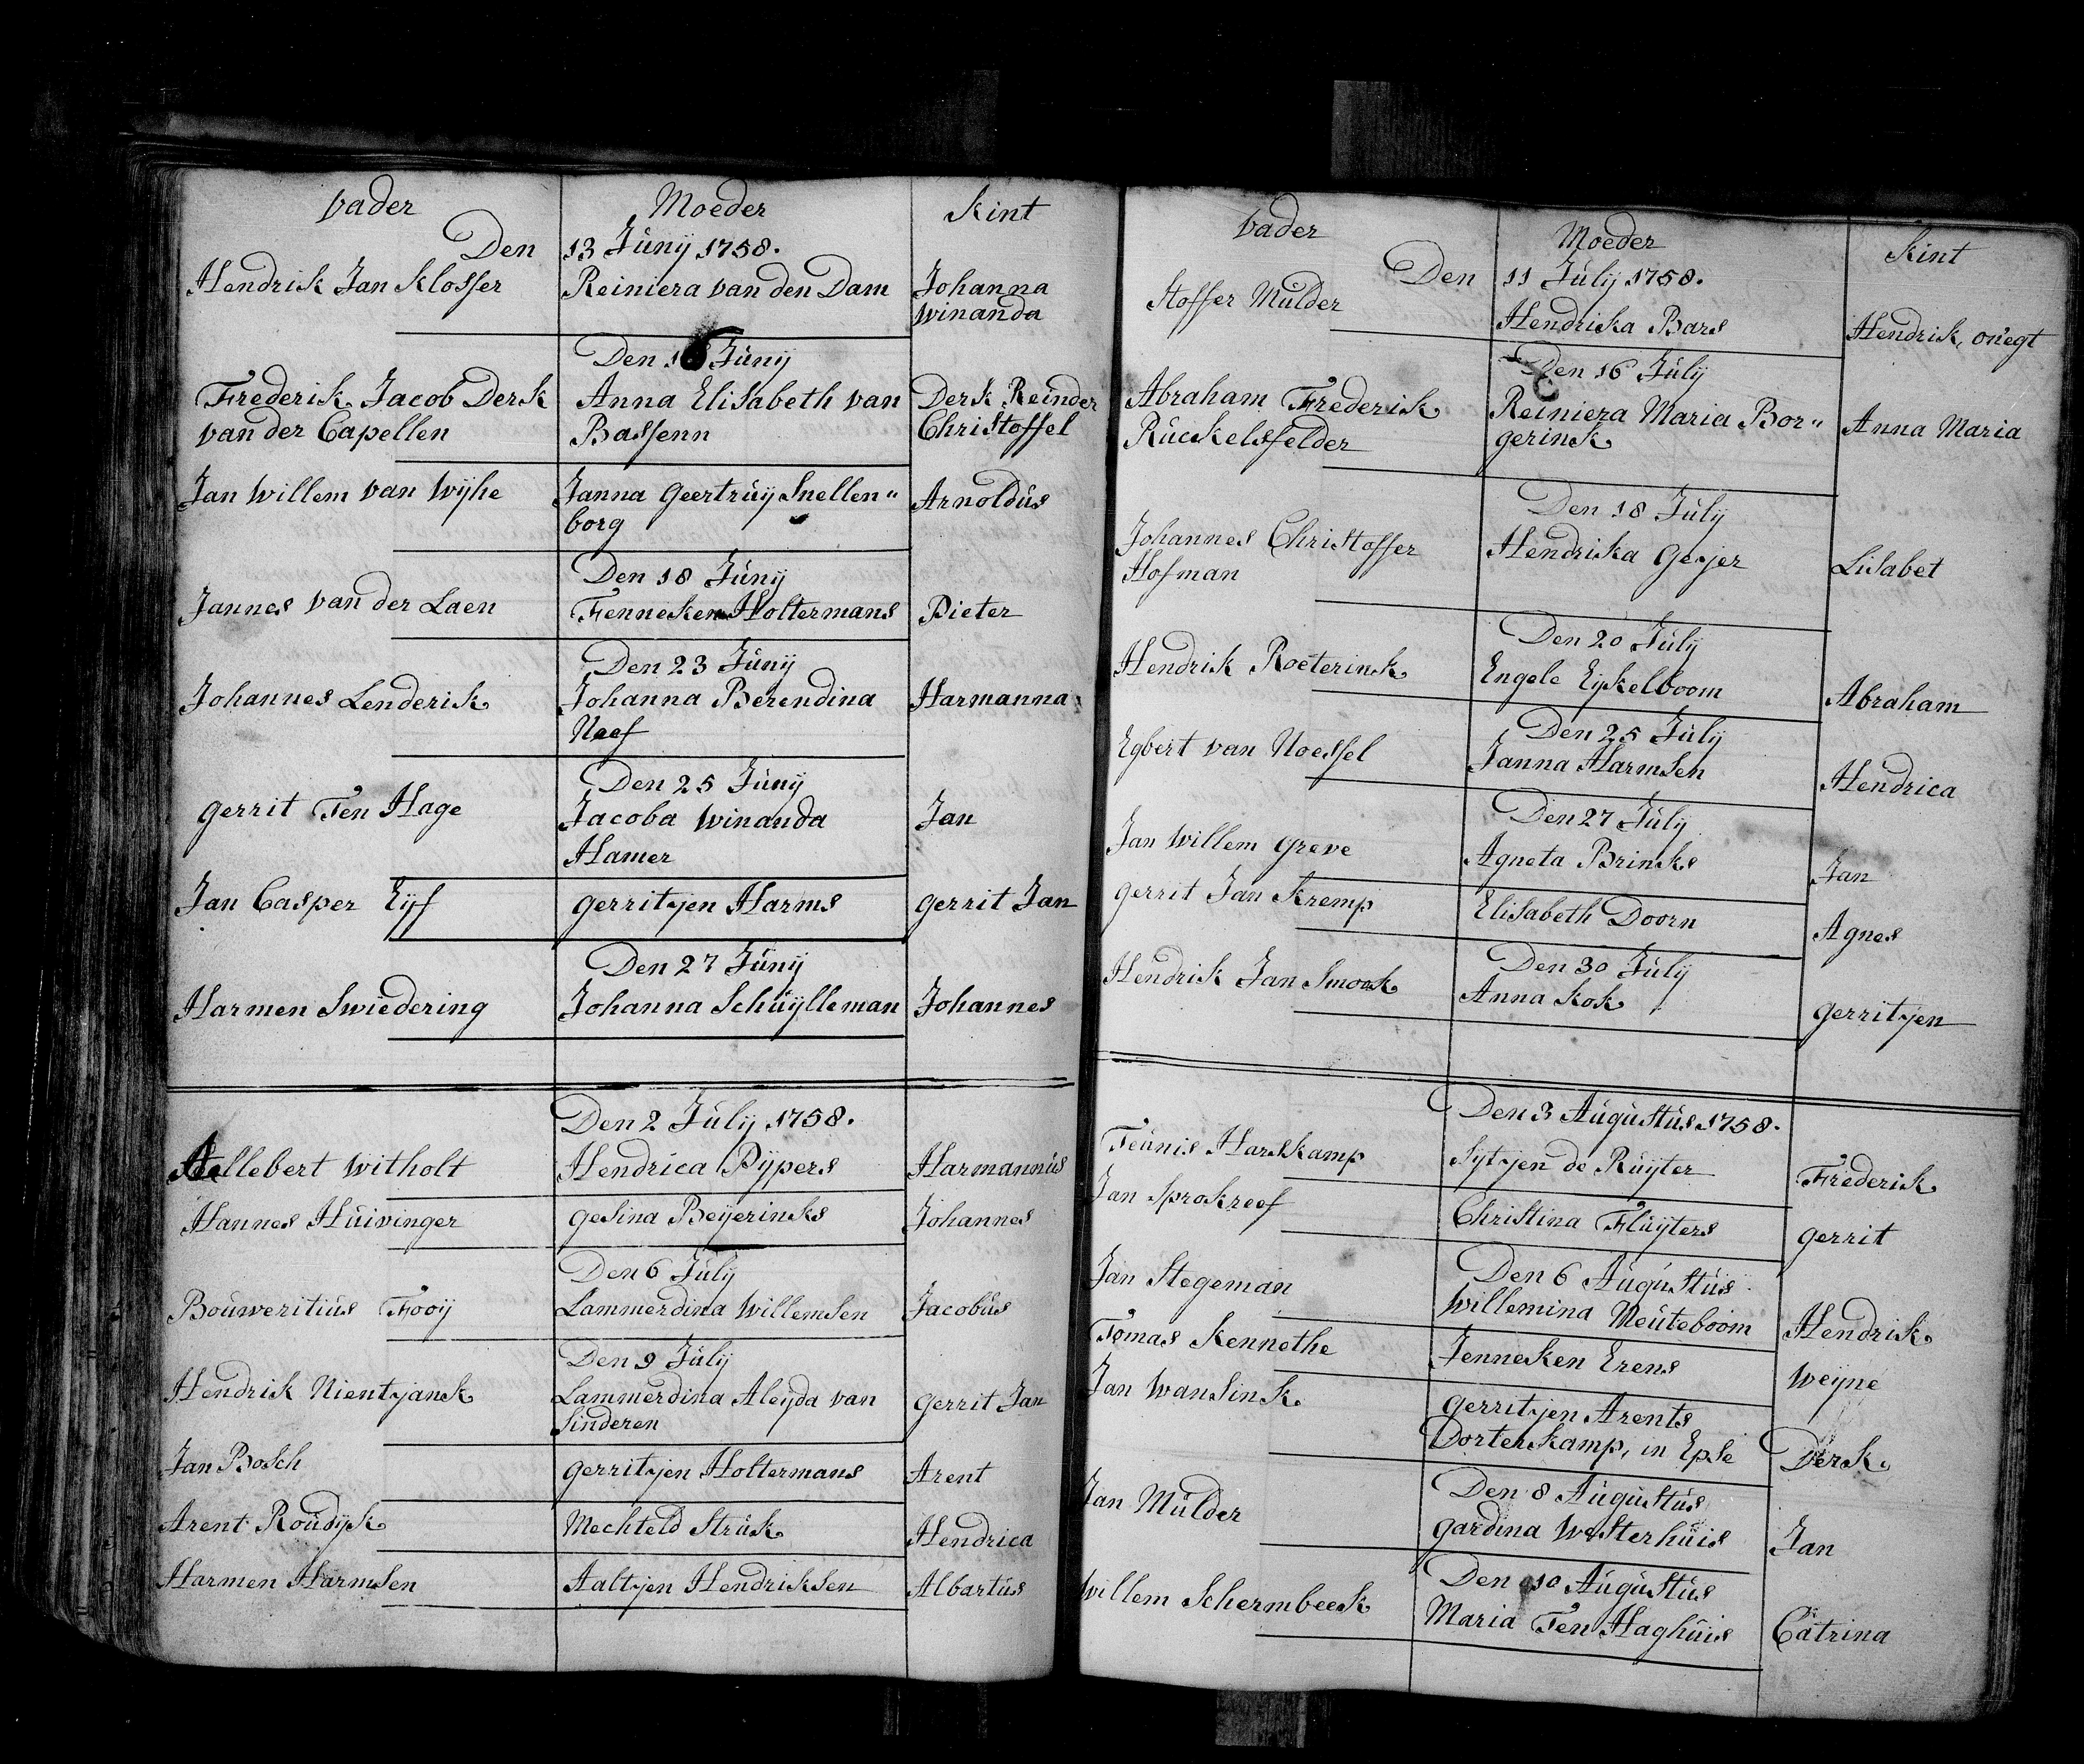 vader Moeder Kint
Den 13 Júnij 1758.
Hendrik Jan Klosser Reiniera van den Dam Johanna
winanda
Den 16 Júnij
Frederik Jacob Derk Anna Elisabeth van Derk Reinder
van der Capellen Bassenn Christoffel
Jan Willem van Wijhe Janna Geertrúij Snellen"
borg Arnoldús
Den 18 Júnij
Jannes van der Laen Fenneken Holtermans Pieter
Den 23 Júnij
Johannes Lenderik Johanna Berendina Harmanna
Neef
Den 25 Júnij
Gerrit Ten Hage Jacoba Winanda Jan
Hamer
Jan Casper Eijf Gerritjen Harms Gerrit Jan
Den 27 Júnij
Harmen Swiedering Johanna Schúijlleman Johannes
Den 2 Júlij 1758.
Aellebert Witholt Hendrica Pijpers Harmannús
Hannes Húivinger Gesina Beijerinks Johannes
Den 6 Júlij
Boúweritiús Fooij Lammerdina Willemsen Jacobús
Den 9 Júlij
Hendrik Nientjansk Lammerdina Aleijda van Gerrit Jan
Sinderen
Jan Bosch Gerritjen Holtermans Arent
Arent Roúdijk Mechteld Strúk Hendrica
Harmen Harmsen Aaltjen Hendriksen Albartús
vader Moeder Kint
Den 11 Júlij 1758.
Stoffer Múlder Hendrika Bars Hendrik, onegt
Den 16 Júlij
Abraham Frederik Reiniera Maria Bor" Anna Maria
Rúckelsfelder gerink
Den 18 Júlij
Johannes Christoffer Hendrika Gesjer Lisabet
Hofman
Den 20 Júlij
Hendrik Roeterink Engele Eijkelboom Abraham
Den 25 Júlij
Egbert van Noessel Janna Harmsen Hendrica
Den 27 Júlij
Jan Willem Greve Agneta Brinks Jan
Gerrit Jan Kremp Elisabeth Doorn Agnes
Den 30 Júlij
Hendrik Jan Smook Anna Kok Gerritjen
Den 3 Aúgústús 1758.
Teúnis Harskamp Sytjen de Rúijter Frederik
Jan Sprokreef Christina Flúijters Gerrit
Den 6 Aúgústús
Jan Stegeman Willemina Meúteboom Hendrik
Tomas Kennethe Jenneken Erens Weijne
Jan Wansink Gerritjen Arents
Dorterkamp, in Epse Derk
Den 8 Aúgústús
Jan Múlder Gardina Westerhúis Jan
Den 10 Aúgústús
Willem Schermbeek Maria Ten Haghúis Catrina